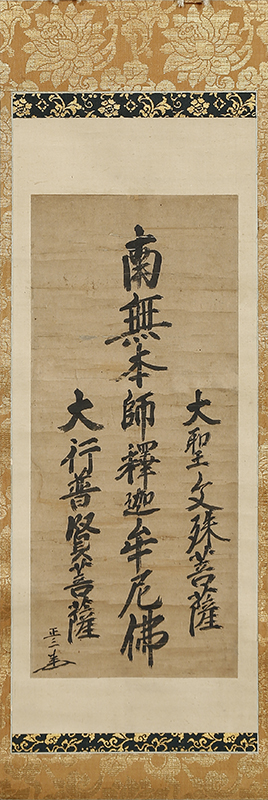 大聖文殊菩薩
南無本師釋迦牟尼佛
大行普賢菩薩
正三